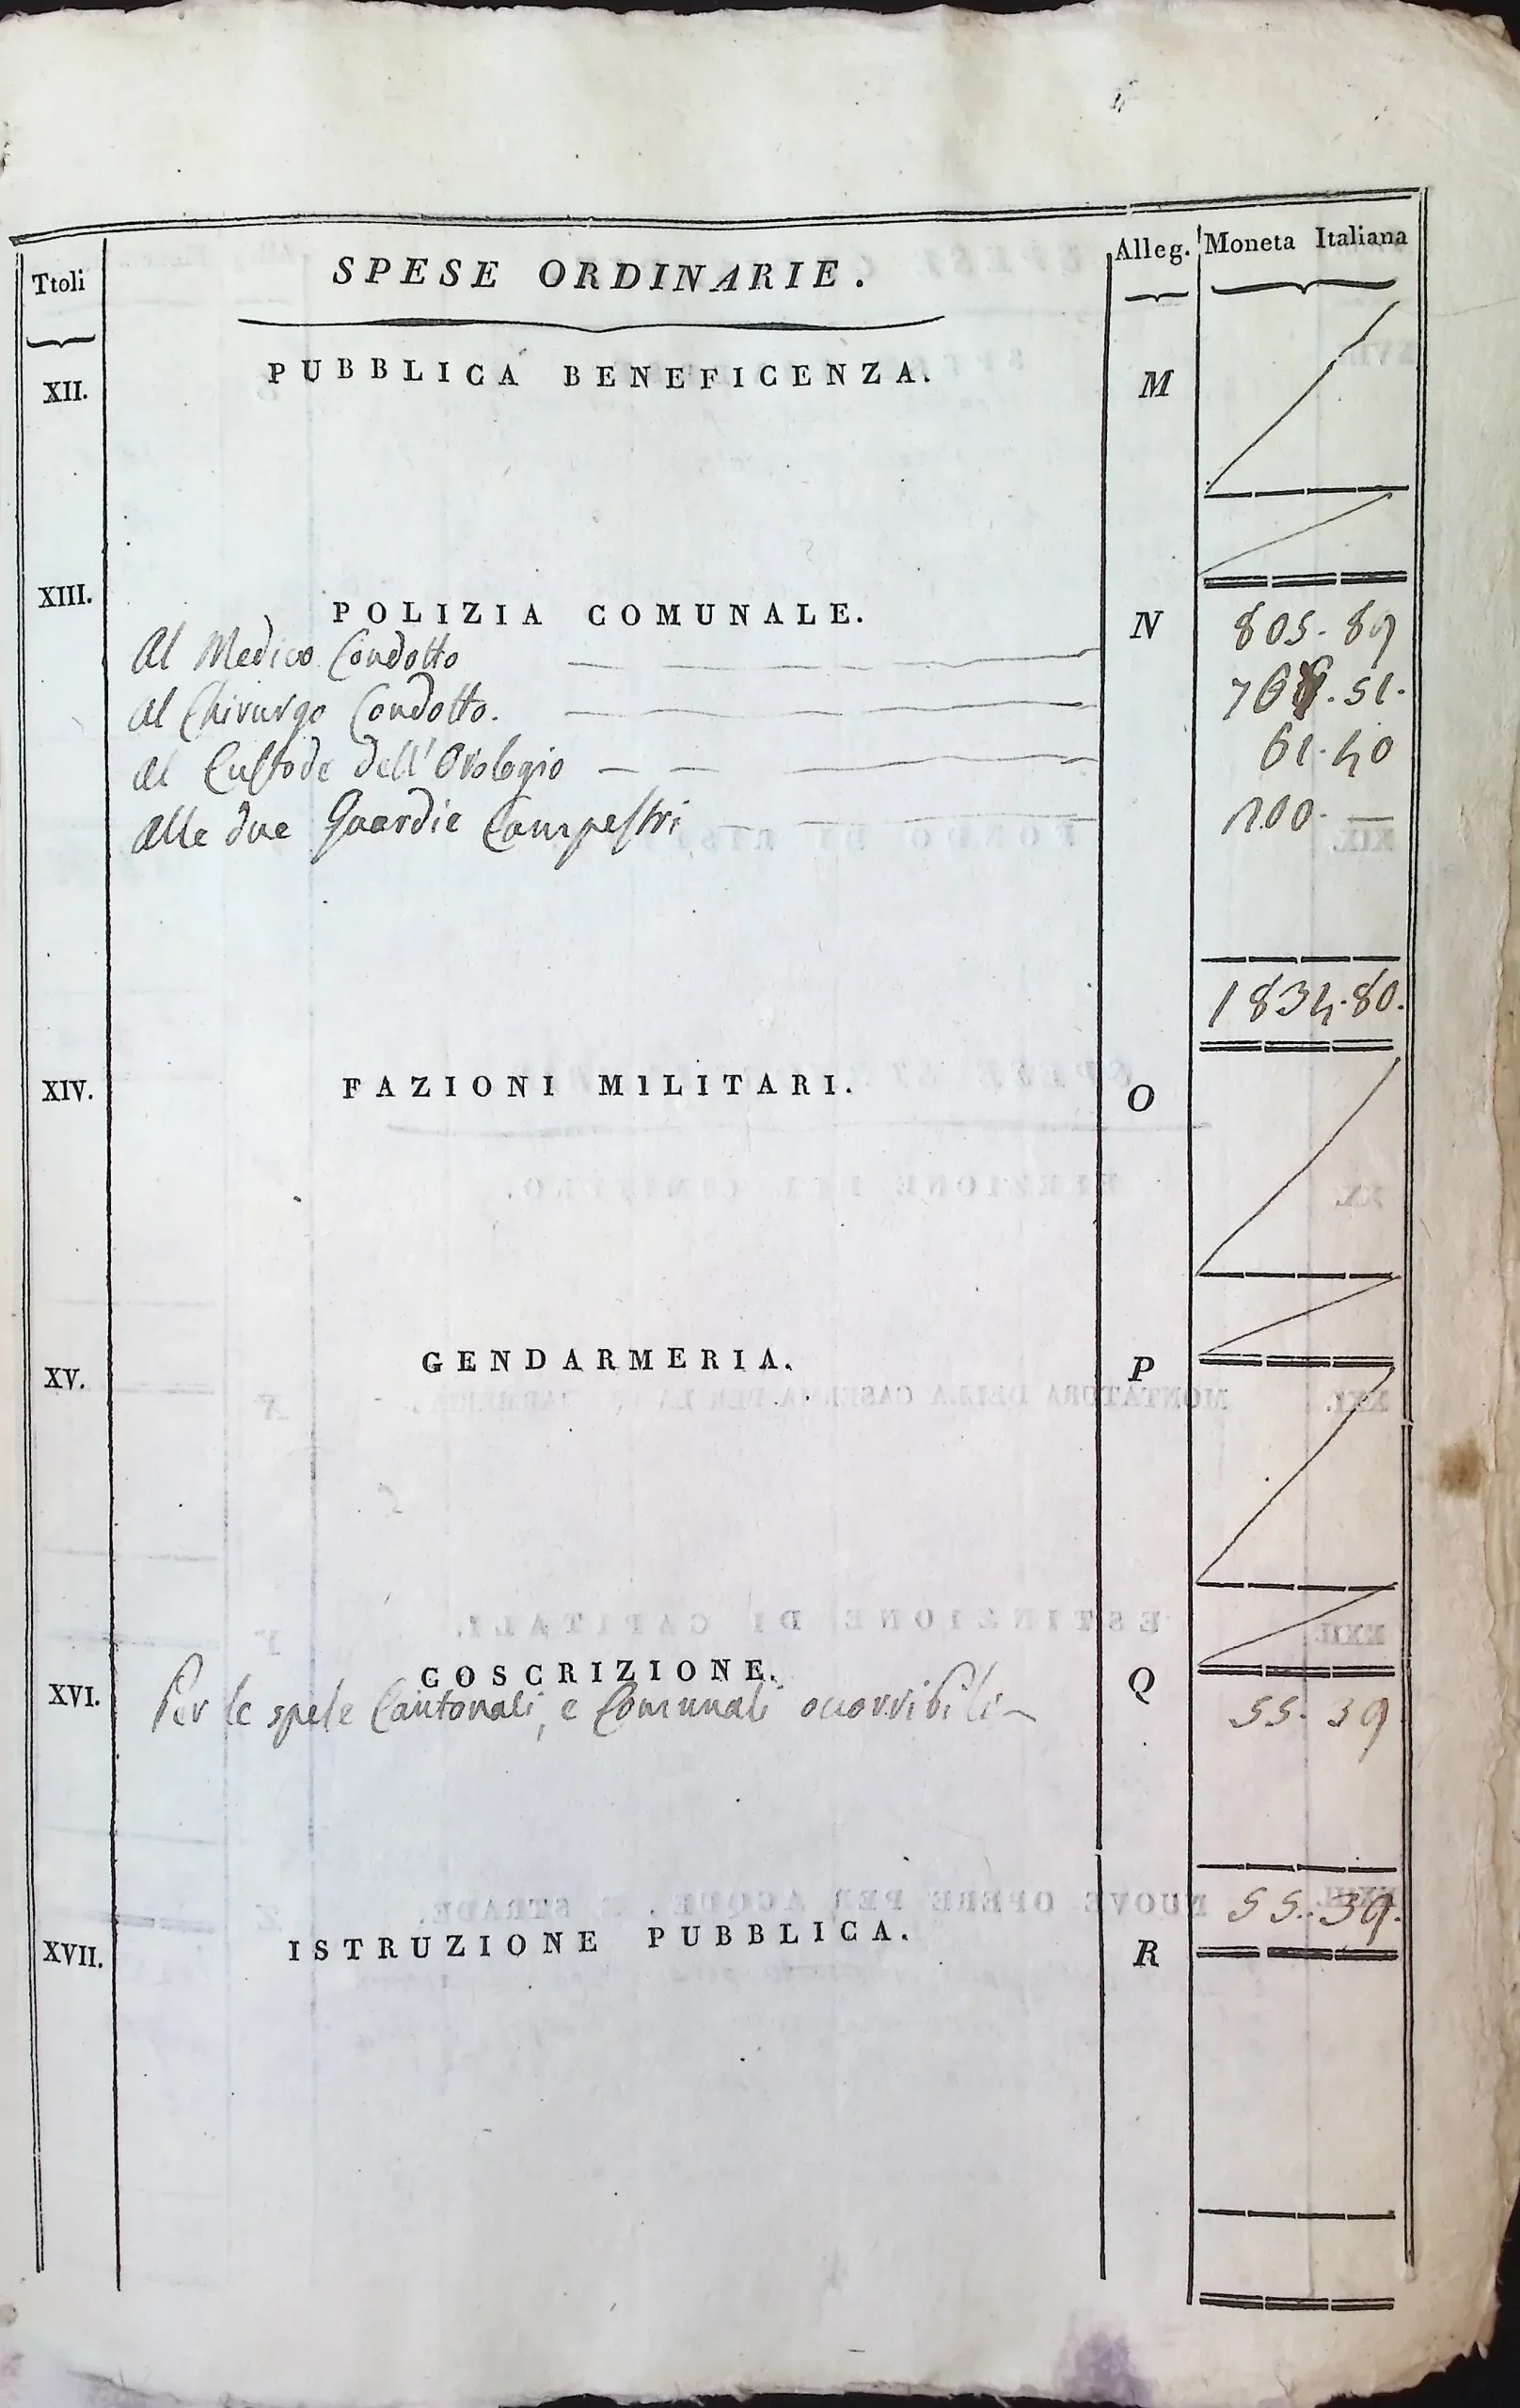 Ttoli
SPESE ORDINARIE.
Alleg.
Moneta Italiana
XII.
PUBBLICA BENEFICENZA.
M
XIII.
POLIZIA COMUNALE.
N
Al Medico Condotto 805. 89
al Chirurgo Condotto. 767. 51.
al Custode dell'Orologio 61. 40
alle due Guardie Campestri 200. —
1834. 80.
XIV.
FAZIONI MILITARI.
O
XV.
GENDARMERIA.
P
XVI.
COSCRIZIONE.
Q
Per le spese Cantonali, e Comunali occorribili 55. 39
55. 39.
XVII.
ISTRUZIONE PUBBLICA.
R